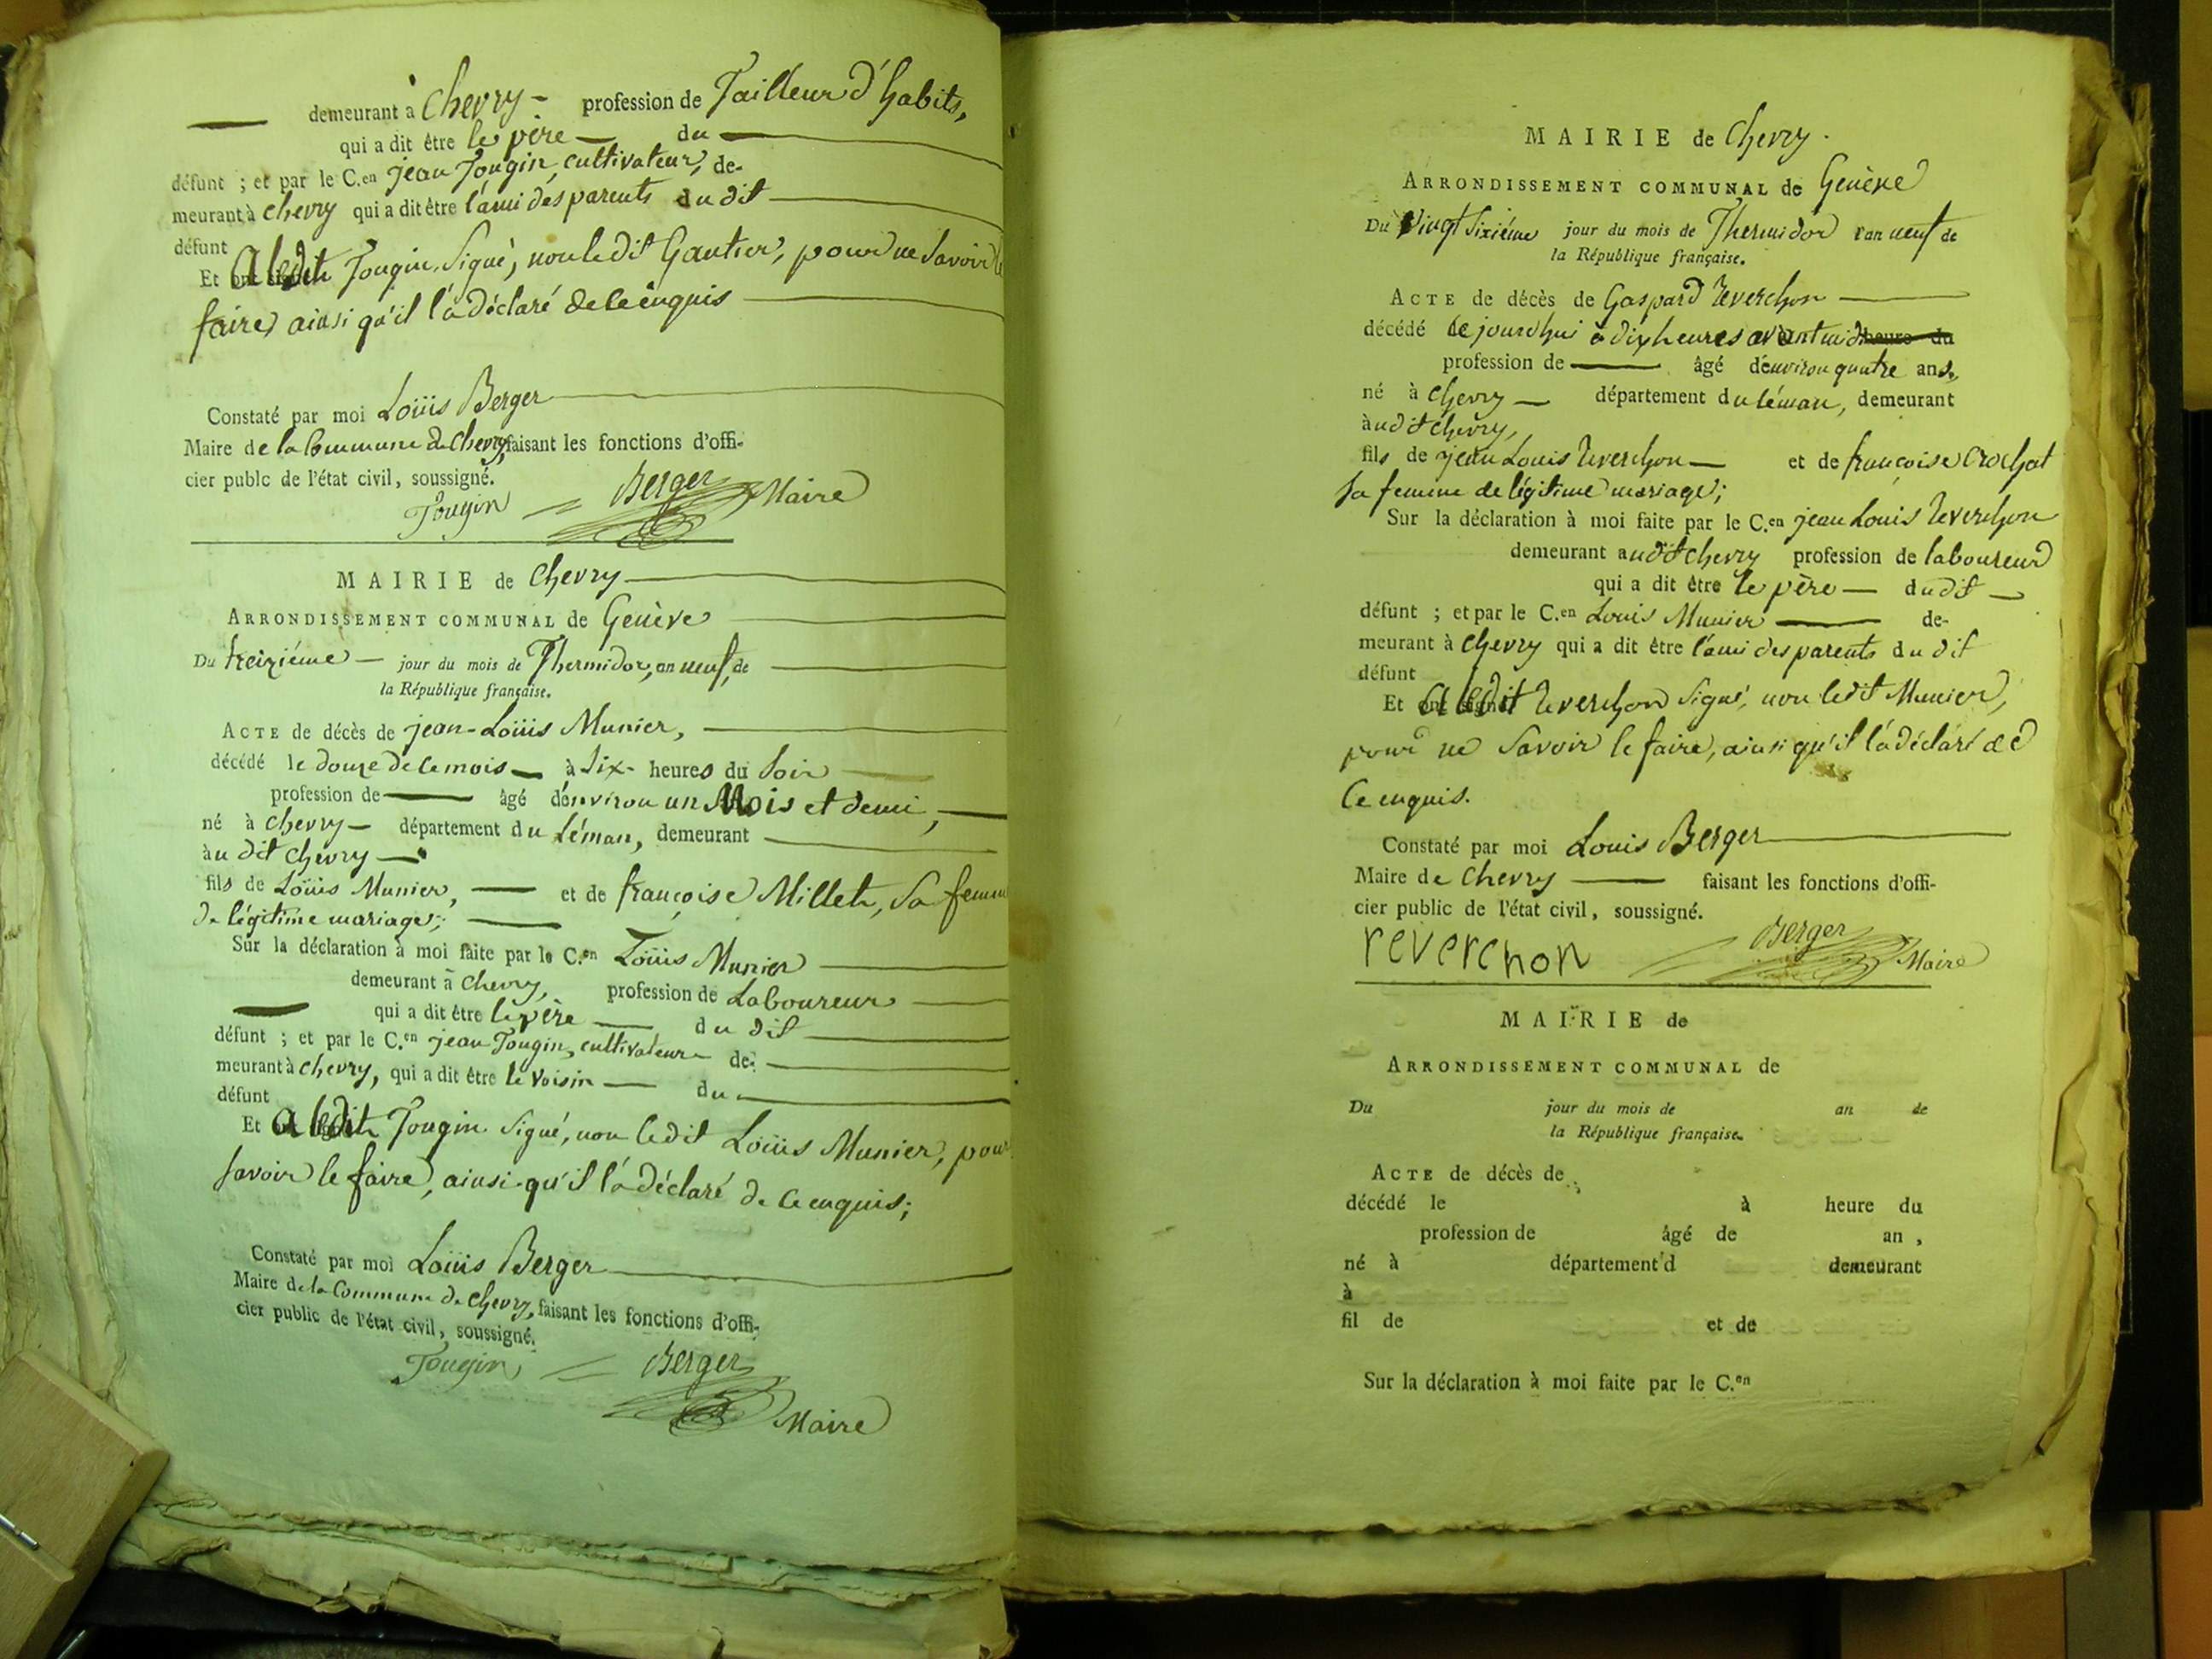 demeurant à Chevry - profession de Tailleur d'habits,
qui a dit être le père du
défunt ; et par le C.en jean Tougin, cultivateur, de-
meurant à Chevry qui a dit être l'ami des parents du dit
défunt
Et a ledit Tougin Signé, non ledit Gautier, pour ne Savoir le
faire, ainsi qu'il l'a déclaré de ce enquis
Constaté par moi Loüis Berger
Maire de la Commune de Chevry, faisant les fonctions d'offi-
cier publc de l'état civil, soussigné.
Tougin Berger Maire
MAIRIE de Chevry
ARRONDISSEMENT COMMUNAL de Genève
Du treizième jour du mois de Thermidor, an neuf, de
la République française.
ACTE de décès de jean-Loüis Munier,
décédé le douze de ce mois à Six heures du Soir
profession de âgé d'environ un Mois et demi,
né à Chevry département du Léman, demeurant
àu dit Chevry
fils de Loüis Munier, et de françoise Millet, Sa femme
de légitime mariage;
Sur la déclaration à moi faite par le C.en Loüis Munier
demeurant à Chevry, profession de Laboureur
qui a dit être le père du dit
défunt ; et par le C.en jean Tougin, cultivateur de-
meurant à Chevry, qui a dit être le Voisin du
défunt
Et a ledit Tougin Signé, non ledit Loüis Munier, pour
Savoir le faire, ainsi qu'il l'a déclaré de ce enquis;
Constaté par moi Loüis Berger
Maire de la Commune de Chevry, faisant les fonctions d'offi-
cier public de l'état civil, soussigné.
Tougin Berger
Maire
MAIRIE de Chevry.
ARRONDISSEMENT COMMUNAL de Genève
Du Vingt Sixième jour du mois de Thermidor l'an neuf de
la République française.
ACTE de décès de Gaspard Reverchon
décédé ce jourd'hui à dix heures avant midi heure du
profession de âgé d'environ quatre ans,
né à Chevry département du Léman, demeurant
àudit Chevry,
fils de jean Louis Reverchon et de françoise Crochat
Sa femme de légitime mariage;
Sur la déclaration à moi faite par le C.en jean Louis Reverchon
demeurant audit Chevry profession de laboureur
qui a dit être le père dudit
défunt ; et par le C.en Louis Munier de-
meurant à Chevry qui a dit être l'ami des parents du dit
défunt
Et a ledit Reverchon Signé, non ledit Munier,
pour ne Savoir le faire, ainsi qu'il l'a déclaré de
Ce enquis.
Constaté par moi Louis Berger
Maire de Chevry faisant les fonctions d'offi-
cier public de l'état civil, soussigné.
reverchon Berger Maire
MAIRIE de
ARRONDISSEMENT COMMUNAL de
Du jour du mois de an de
la République française.
ACTE de décès de
décédé le à heure du
profession de âgé de an ,
né à département d demeurant
à
fil de et de
Sur la déclaration à moi faite par le C.en